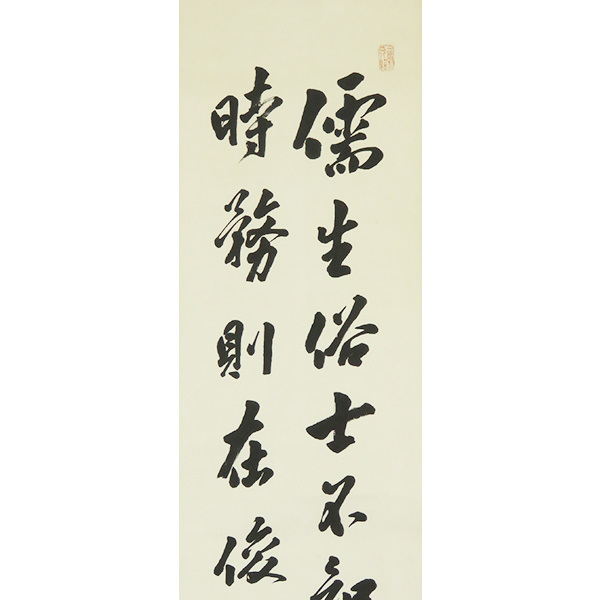 儒生俗士不
時務則在俊